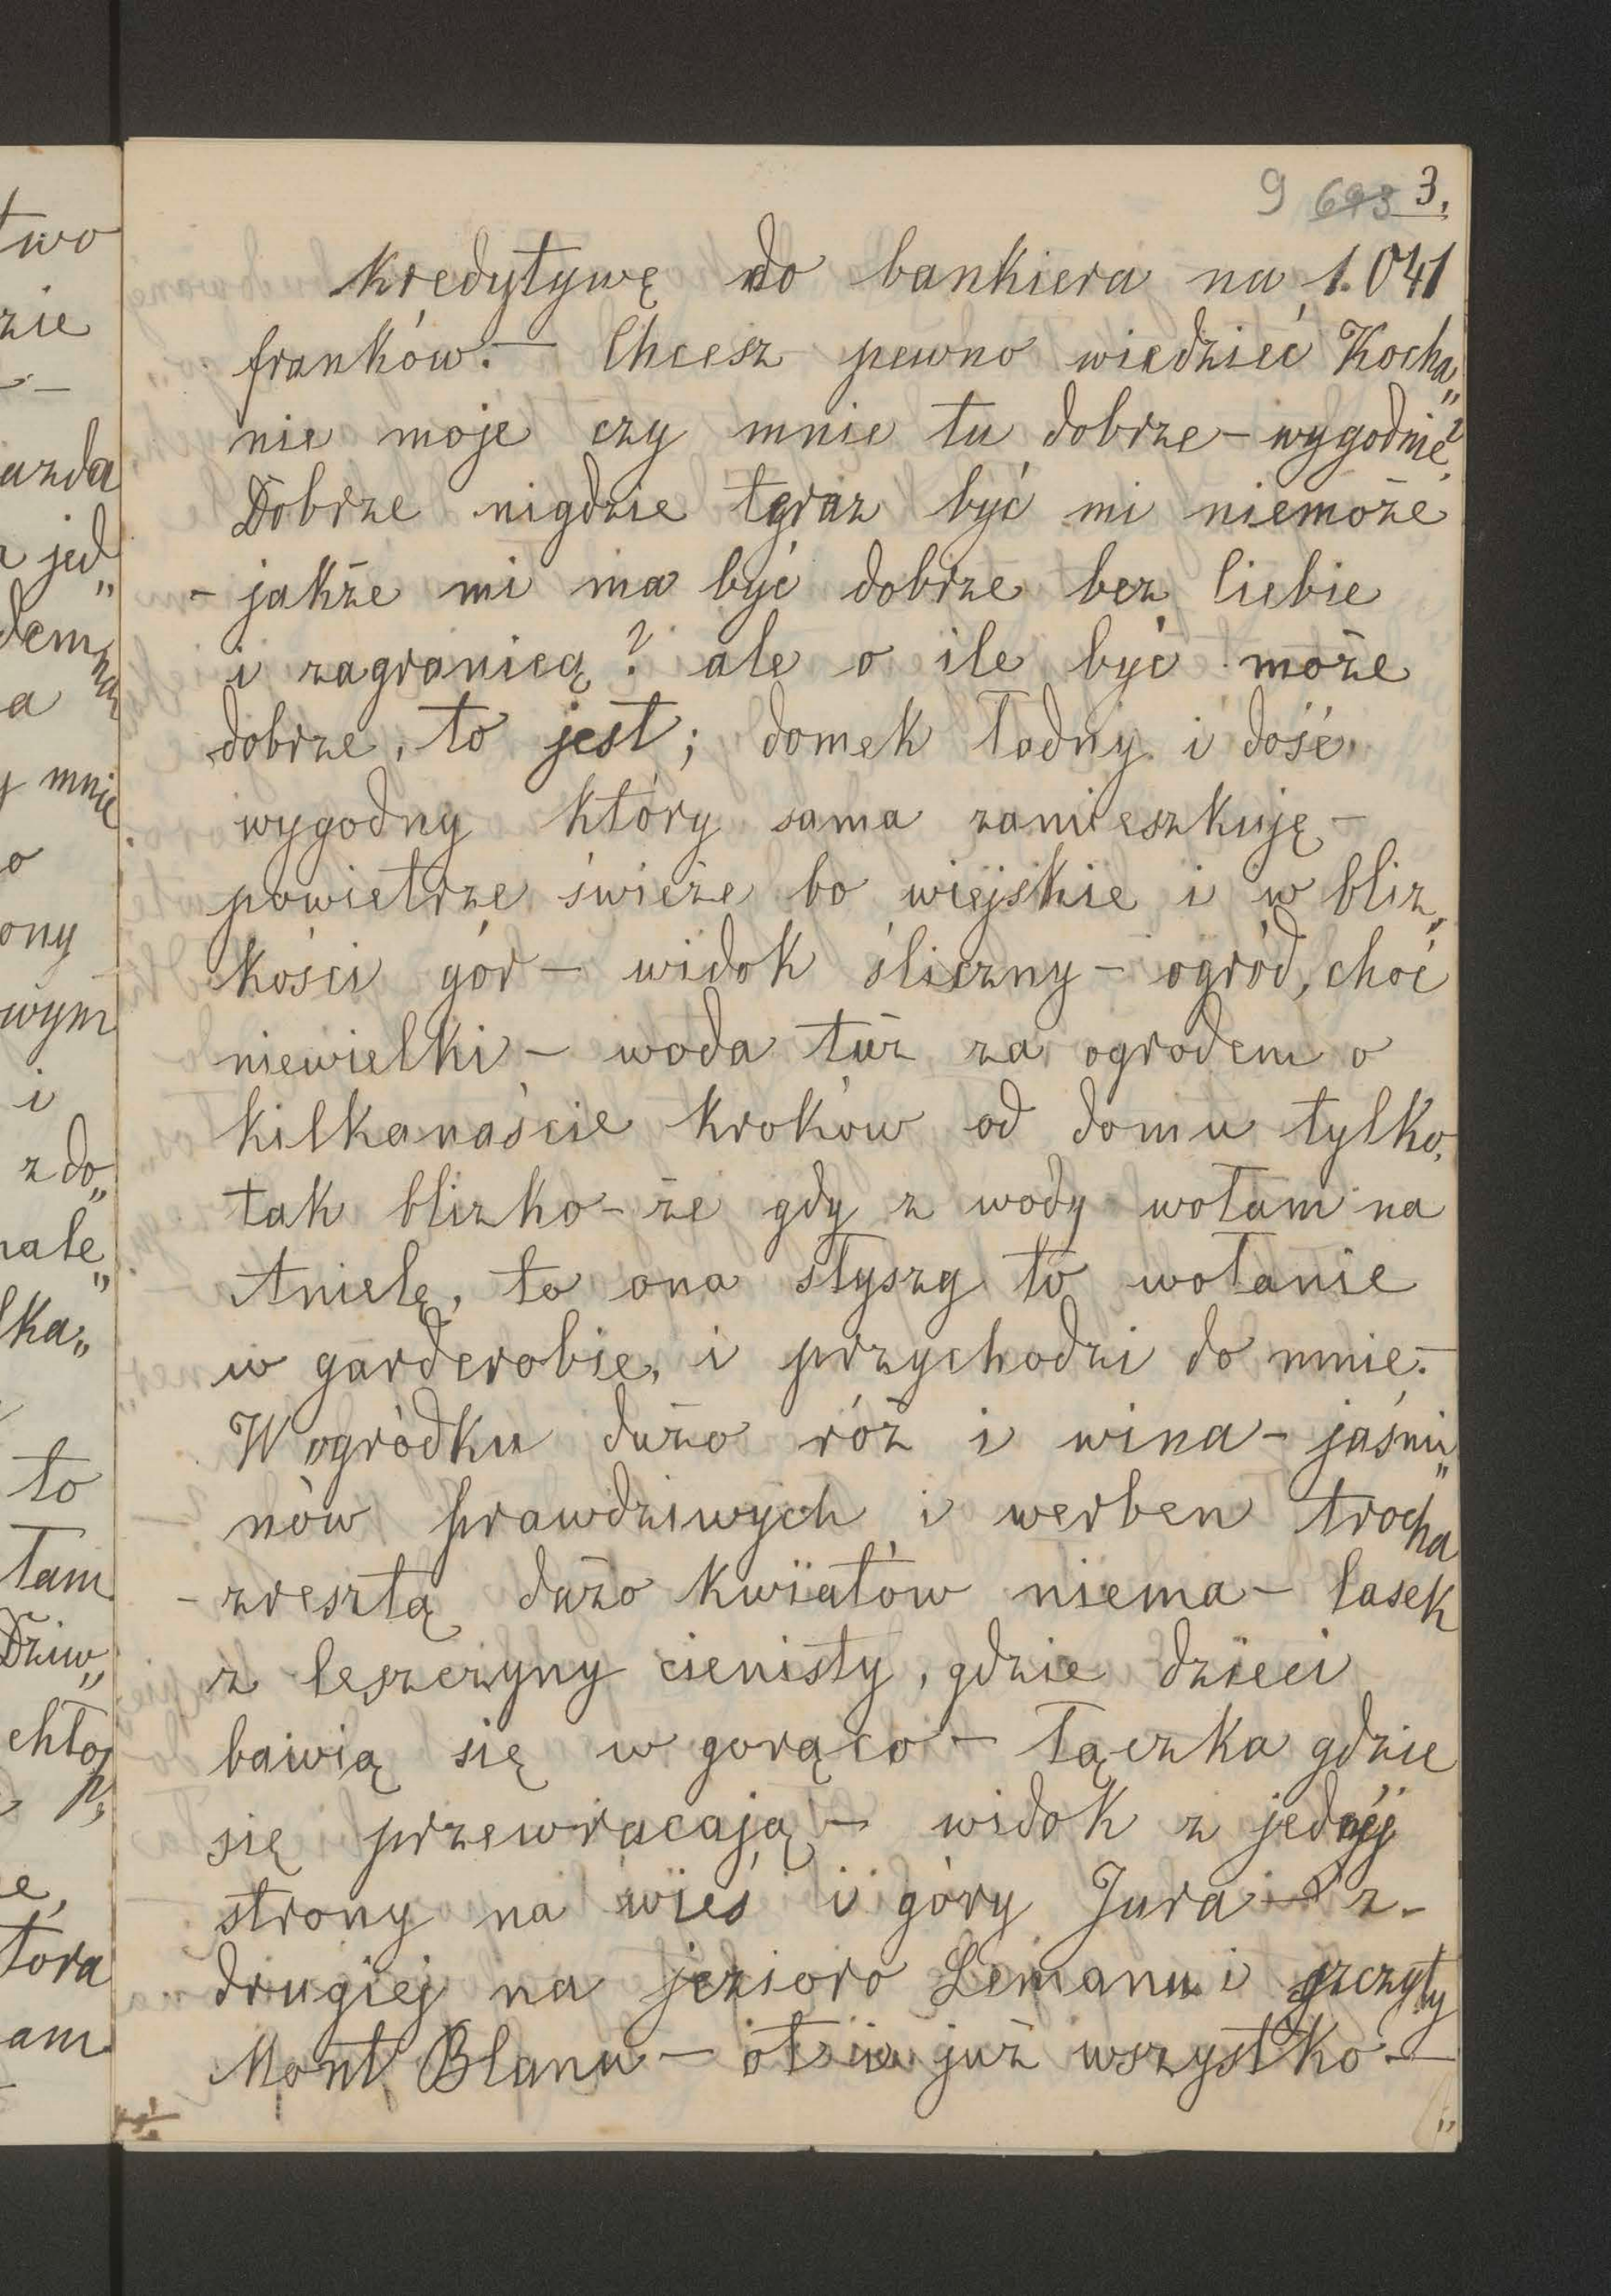 9 693 3.
kredytywę do bankiera na 1.041
franków.— Chcesz pewno wiedzieć Kocha„
nie moje czy mnie tu dobrze – wygodnie?
Dobrze nigdzie teraz być mi niemoże
– jakże mi ma być dobrze bez Ciebie
i zagranicą? ale o ile być może
dobrze, to jest; domek ładny i dość
wygodny który sama zamieszkuję –
powietrze świeże bo wiejskie i w bliz„
kości gór – widok śliczny – ogród, choć
niewielki – woda tuż za ogrodem o
kilkanaście kroków od domu tylko,
tak blizko – że gdy z wody wołam na
Anielę, to ona słyszy to wołanie
w garderobie, i przychodzi do mnie.–
W ogródku dużo róż i wina – jaśmi„
nów prawdziwych i werben trocha
– zresztą dużo kwiatów niema – lasek
z leszczyny cienisty, gdzie dzieci
bawią się w gorąco – łączka gdzie
się przewracają – widok z jednej
strony na wieś i góry Jura – z
drugiej na jezioro Lemanu i szczyty
Mont Blanu – ot i już wszystko.—
two
zie
azda
jed„
dem
a
mnie
o
ony
wym
i
z do„
nale„
lka„
to
łam
Dziw„
chło
p„
e,
tora
am